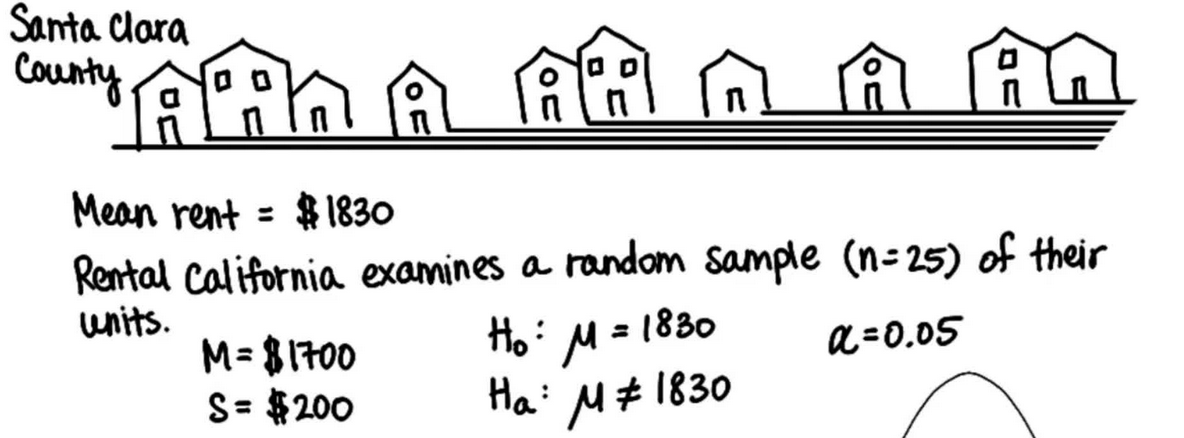 Santa Clara
County
Mean rent = $1830
Rental California examines a random sample (n=25) of their
units.
M = $1700
S = $200
H₀: μ = 1830
Hₐ: μ ≠ 1830
α=0.05